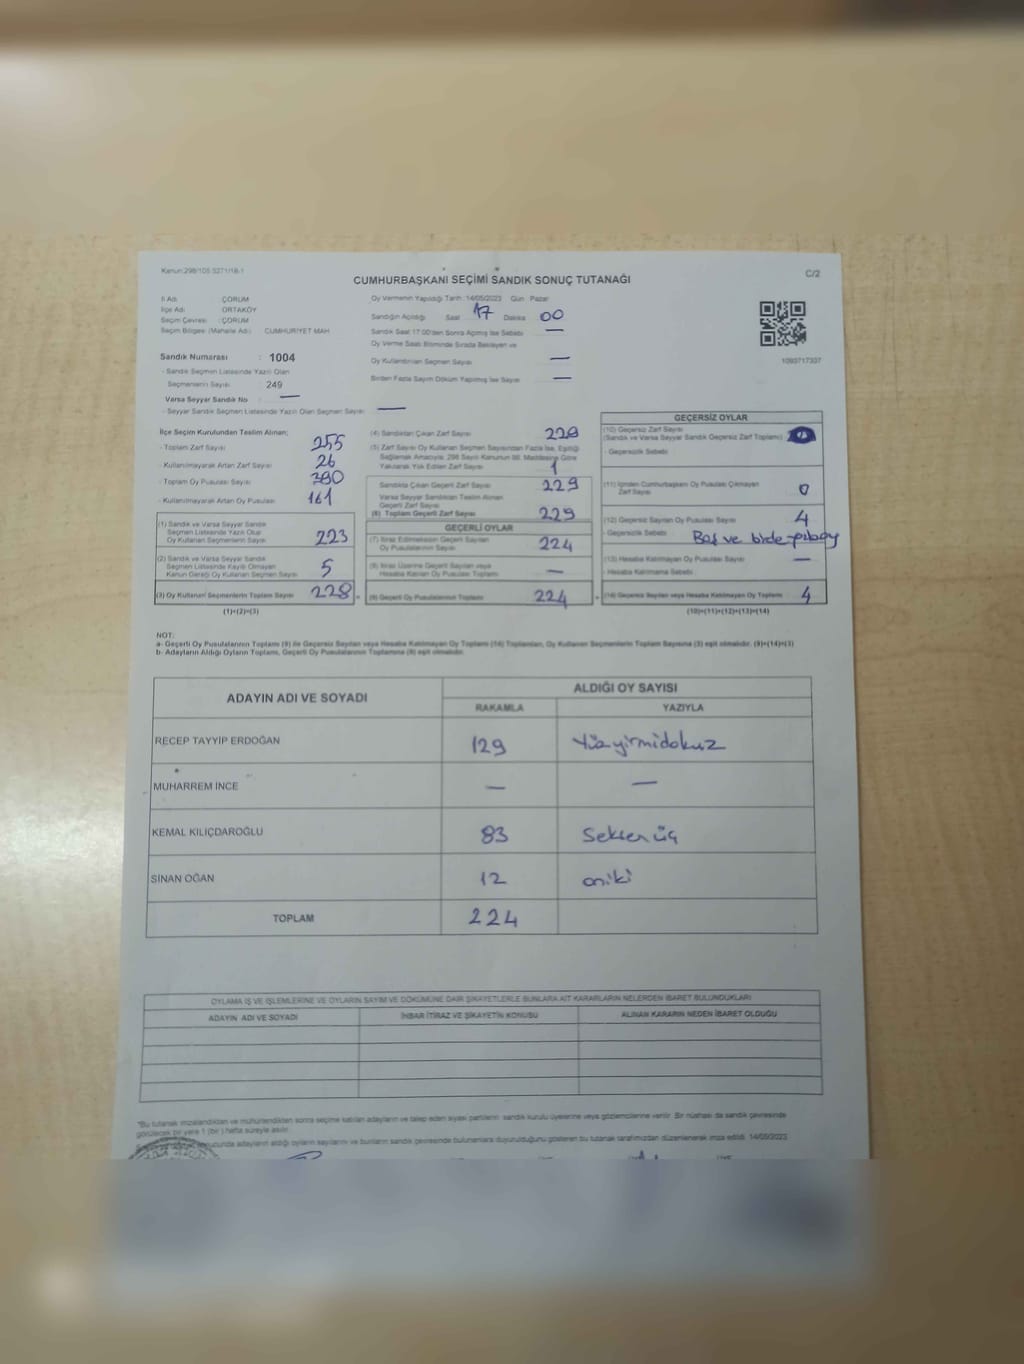 Kanun:298/105 5271/18-1
C/2
CUMHURBAŞKANI SEÇİMİ SANDIK SONUÇ TUTANAĞI
İl Adı : ÇORUM
İlçe Adı : ORTAKÖY
Seçim Çevresi : ÇORUM
Seçim Bölgesi (Mahalle Adı) CUMHURİYET MAH
Sandık Numarası : 1004
- Sandık Seçmen Listesinde Yazılı Olan
Seçmenlerin Sayısı : 249
Varsa Seyyar Sandık No : —
- Seyyar Sandık Seçmen Listesinde Yazılı Olan Seçmen Sayısı : —
Oy Vermenin Yapıldığı Tarih: 14/05/2023 Gün Pazar
Sandığın Açıldığı Saat 17 Dakika 00
Sandık Saat 17:00'den Sonra Açılmış İse Sebebi —
Oy Verme Saati Bitiminde Sırada Bekleyen ve
Oy Kullandırılan Seçmen Sayısı —
Birden Fazla Sayım Döküm Yapılmış İse Sayısı —
1093717337
İlçe Seçim Kurulundan Teslim Alınan;
- Toplam Zarf Sayısı 255
- Kullanılmayarak Artan Zarf Sayısı 26
- Toplam Oy Pusulası Sayısı
- Kullanılmayarak Artan Oy Pusulası 161
(1) Sandık ve Varsa Seyyar Sandık
Seçmen Listesinde Yazılı Olup
Oy Kullanan Seçmenlerin Sayısı 223
(2) Sandık ve Varsa Seyyar Sandık
Seçmen Listesinde Kayıtlı Olmayan
Kanun Gereği Oy Kullanan Seçmen Sayısı 5
(3) Oy Kullanan Seçmenlerin Toplam Sayısı 228 =
(1)+(2)=(3)
(4) Sandıktan Çıkan Zarf Sayısı
(5) Zarf Sayısı Oy Kullanan Seçmen Sayısından Fazla İse, Eşitliği
Sağlamak Amacıyla, 298 Sayılı Kanunun 98. Maddesine Göre
Yakılarak Yok Edilen Zarf Sayısı 1
Sandıkta Çıkan Geçerli Zarf Sayısı 229
Varsa Seyyar Sandıktan Teslim Alınan
Geçerli Zarf Sayısı
(6) Toplam Geçerli Zarf Sayısı 229
GEÇERLİ OYLAR
(7) İtiraz Edilmeksizin Geçerli Sayılan
Oy Pusulalarının Sayısı 224
(8) İtiraz Üzerine Geçerli Sayılan veya
Hesaba Katılan Oy Pusulaları Toplamı —
(9) Geçerli Oy Pusulalarının Toplamı 224 +
GEÇERSİZ OYLAR
(10) Geçersiz Zarf Sayısı
(Sandık ve Varsa Seyyar Sandık Geçersiz Zarf Toplamı)
- Geçersizlik Sebebi
(11) İçinden Cumhurbaşkanı Oy Pusulası Çıkmayan
Zarf Sayısı 0
(12) Geçersiz Sayılan Oy Pusulası Sayısı 4
- Geçersizlik Sebebi Boş ve
(13) Hesaba Katılmayan Oy Pusulası Sayısı —
- Hesaba Katılmama Sebebi
(14) Geçersiz Sayılan veya Hesaba Katılmayan Oy Toplamı 4
(10)+(11)+(12)+(13)=(14)
NOT:
a- Geçerli Oy Pusulalarının Toplamı (9) ile Geçersiz Sayılan veya Hesaba Katılmayan Oy Toplamı (14) Toplamları, Oy Kullanan Seçmenlerin Toplam Sayısına (3) eşit olmalıdır. (9)+(14)=(3)
b- Adayların Aldığı Oyların Toplamı, Geçerli Oy Pusulalarının Toplamına (9) eşit olmalıdır.
ADAYIN ADI VE SOYADI
ALDIĞI OY SAYISI
RAKAMLA YAZIYLA
RECEP TAYYİP ERDOĞAN 129 Yüzyirmidokuz
MUHARREM İNCE — —
KEMAL KILIÇDAROĞLU 83 Seksen üç
SİNAN OĞAN 12 oniki
TOPLAM 224
OYLAMA İŞ VE İŞLEMLERİNE VE OYLARIN SAYIM VE DÖKÜMÜNE DAİR ŞİKAYETLERLE BUNLARA AİT KARARLARIN NELERDEN İBARET BULUNDUKLARI
ADAYIN ADI VE SOYADI İHBAR İTİRAZ VE ŞİKAYETİN KONUSU ALINAN KARARIN NEDEN İBARET OLDUĞU
*Bu tutanak imzalandıktan ve mühürlendikten sonra seçime katılan adayların ve talep eden siyasi partilerin sandık kurulu üyelerine veya gözlemcilerine verilir. Bir nüshası da sandık çevresinde
görülecek bir yere 1 (bir) hafta süreyle asılır.
sonucunda adayların aldığı oyların sayılarını ve bunların sandık çevresinde bulunanlara duyurulduğunu gösteren bu tutanak tarafımızdan düzenlenerek imza edildi. 14/05/2023